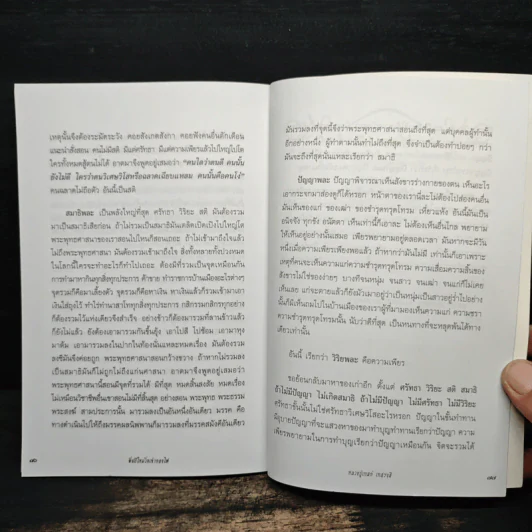 เหตุนั้นจึงต้องระมัดระวัง คอยสังเกตสังกา คอยฟังคนอื่นตักเตือน
แนะนำสั่งสอน คนไม่มีสติ มีแต่ศรัทธา มีแต่ความเพียรแล้วไปใหญ่ไปโต
ใครทั้งหมดสู้คนไม่ได้ อาตมาจึงพูดอยู่เสมอว่า "คนใดว่าตนดี คนนั้น
ยังไม่ดี ใครว่าตนวิเศษวิโสหรือฉลาดเฉียบแหลม คนนั้นคือคนโง่"
คนฉลาดไม่ถือตัว อันนี้เป็นสติ
สมาธิพละ เป็นพลังใหญ่ที่สุด ศรัทธา วิริยะ สติ มันต้องรวม
มาเป็นสมาธิเสียก่อน ถ้าไม่รวมเป็นสมาธิมันเตลิดเปิดเปิงไปใหญ่โต
พระพุทธศาสนาของเราสอนไปไหนก็สอนเถอะ ถ้าไม่เข้ามาถึงใจแล้ว
ไม่ถึงพระพุทธศาสนา มันต้องรวมเข้ามาถึงใจ สิ่งทั้งหลายทั้งปวงหมด
ในโลกนี้ใครจะทำอะไรก็ทำไปเถอะ ต้องมีที่รวมเป็นจุดเหมือนกัน
การทำมาหากินทุกสิ่งทุกประการ ค้าขาย ทำราชการบ้านเมืองอะไรต่างๆ
จุดรวมก็คือมาเลี้ยงตัว จุดรวมก็คือหาเงิน หาเงินแล้วก็รวมเข้ามาเอา
เงินใส่ถุงไว้ ทำไร่ทำนาสำไรทุกสิ่งทุกประการ กสิกรรมกสิกรทุกอย่าง
ก็ต้องรวมไว้แห่งเดียวจึงสำเร็จ อย่างข้าวก็ต้องมารวมที่ลานข้าวแล้ว
ก็ยังไม่แล้ว ยังต้องเอามารวมกันขึ้นยุ้ง เอาไปสี ไปซ้อม เอามาหุง
มาต้ม เอามารวมลงในปากในท้องนั่นแหละหมดเรื่อง มันต้องรวม
ลงซีมันจึงค่อยถูก พระพุทธศาสนาสอนกว้างขวาง ถ้าหากไม่รวมลง
เป็นสมาธิมันก็ไม่ถูกไม่ถึงแก่นศาสนา อาตมาจึงพูดอยู่เสมอว่า
พระพุทธศาสนานี้สอนมีจุดที่รวมได้ มีที่สุด หมดสิ้นสงสัย หมดเรื่อง
ไม่เหมือนวิชาชีพอื่นเขาสอนไม่มีที่สิ้นสุด อย่างสอน พุทธ พระธรรม
พระสงฆ์ สามประการนั้น มารวมลงเป็นอันหนึ่งอันเดียว มรรค คือ
ทางดำเนินไปให้ถึงมรรคผลนิพพานก็มารวมลงที่มรรคสมังคีอันเดียว
มันรวมลงที่จุดนี้จึงว่าพระพุทธศาสนาสอนถึงที่สุด แต่บุคคลผู้ทำนั้น
อีกอย่างหนึ่ง ผู้ทำตามนั้นทำไม่ถึงที่สุด จึงจำเป็นต้องทำบ่อยๆ กว่า
มันจะถึงที่สุดนั่นแหละเรียกว่า สมาธิ
ปัญญาพละ ปัญญาพิจารณาเห็นสังขารร่างกายของตน เห็นอะไร
เอากระจกมาส่องดูก็ได้หรอก หน้าตาของเรานี่ละไม่ต้องไปส่องคนอื่น
มันเห็นของแก่ ของเฒ่า ของชำรุดทรุดโทรม เหี่ยวแห้ง อันนี้มันเป็น
อนิจจัง ทุกขัง อนัตตา เห็นเท่านี้ก็เอาละ ไม่ต้องเห็นอื่นไกล พยายาม
ให้เห็นอยู่อย่างนั้นเสมอ เพียรพยายามอยู่ตลอดเวลา มันหากจะมีวัน
หนึ่งเมื่อความเพียรเพียงพอแล้ว ถ้าหากว่ามันไม่มี เท่านั้นก็เอาเพราะ
เหตุที่คนจะเห็นความแก่ความชำรุดทรุดโทรม ความเสื่อมความสิ้นของ
สังขารไม่ใช่ของง่ายๆ บางทีจนหนุ่ม จนสาว จนเฒ่า จนแก่ก็ไม่เคย
เห็นเลย แก่จะตายแล้วก็ยังมัวเมาอยู่ว่าเป็นหนุ่มเป็นสาวอยู่ว่าไปอย่าง
นั้นก็มีเห็นถมไปในบ้านเมืองของเราผู้ที่มามองเห็นความแก่ ความชรา
ความชำรุดทรุดโทรมนั้น นับว่าดีที่สุด เป็นหนทางที่จะหลุดพ้นได้ทาง
เดียวเท่านั้น
อันนี้ เรียกว่า วิริยพละ คือความเพียร
ขอย้อนกลับมาหาของเก่าอีก ตั้งแต่ ศรัทธา วิริยะ สติ สมาธิ
ถ้าไม่มีปัญญา ไม่เกิดสมาธิ ถ้าไม่มีปัญญา ไม่มีศรัทธา ไม่มีวิริยะ
ศรัทธาขั้นนั้นไม่ใช่ศรัทธาวิเศษวิโสอะไรหรอก ปัญญาในขั้นทำทาน
มีอุบายปัญญาที่จะแสวงหาของมาทำบุญทำทานเรียกว่าปัญญา ความ
เพียรพยายามในการทำบุญเรียกว่าปัญญาเหมือนกัน จิตจะรวมได้